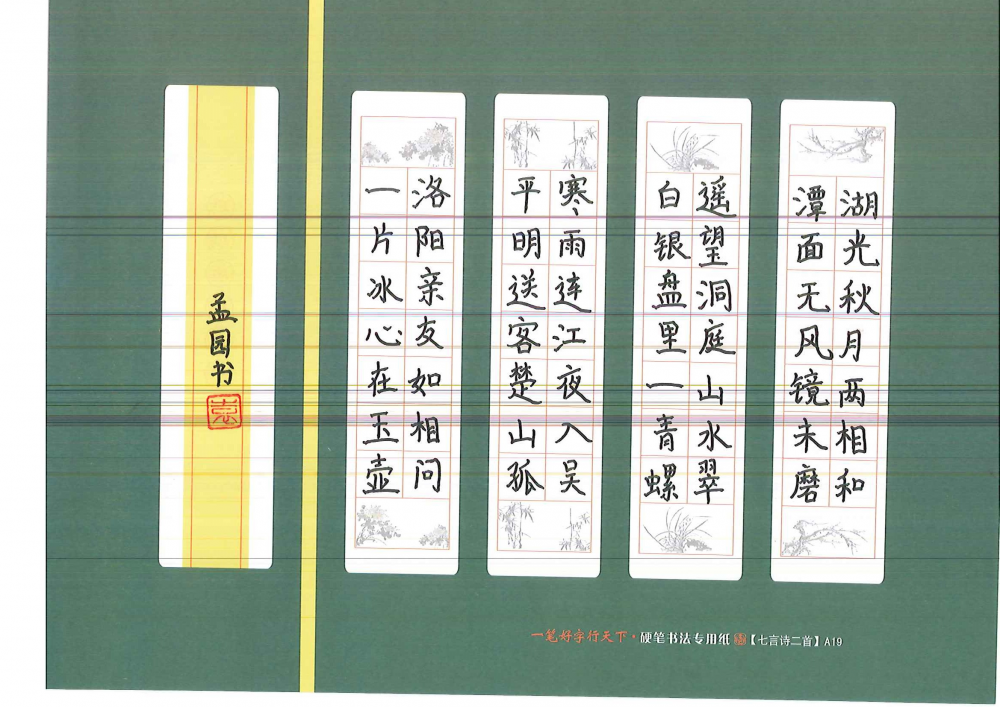 湖光秋月两相和
潭面无风镜未磨
遥望洞庭山水翠
白银盘里一青螺
寒雨连江夜入吴
平明送客楚山孤
洛阳亲友如相问
一片冰心在玉壶
孟园书
一笔好字行天下·硬笔书法专用纸【七言诗二首】A19